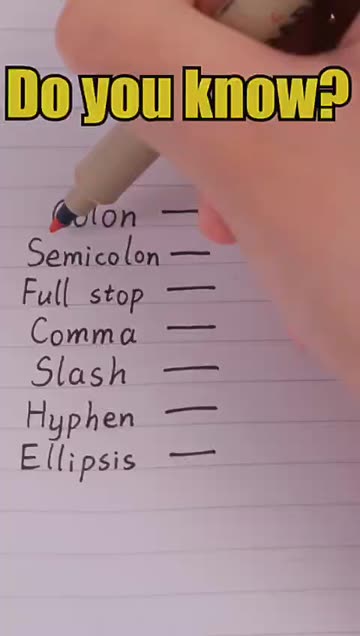 Do you know?
Colon —
Semicolon —
Full stop —
Comma —
Slash —
Hyphen —
Ellipsis —